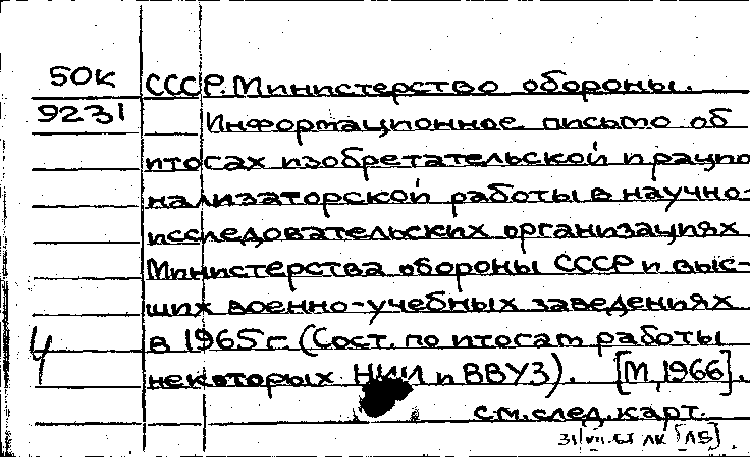 50К СССР. Министерство обороны.
9231 Информационное письмо об
итогах изобретательской и рацио
нализаторской работы в научно-
исследовательских организациях
Министерства обороны СССР и выс-
ших военно-учебных заведениях
в 1965 г. (Сост. по итогам работы
некоторых НИИ и ВВУЗ). [М, 1966].
см. след. карт.